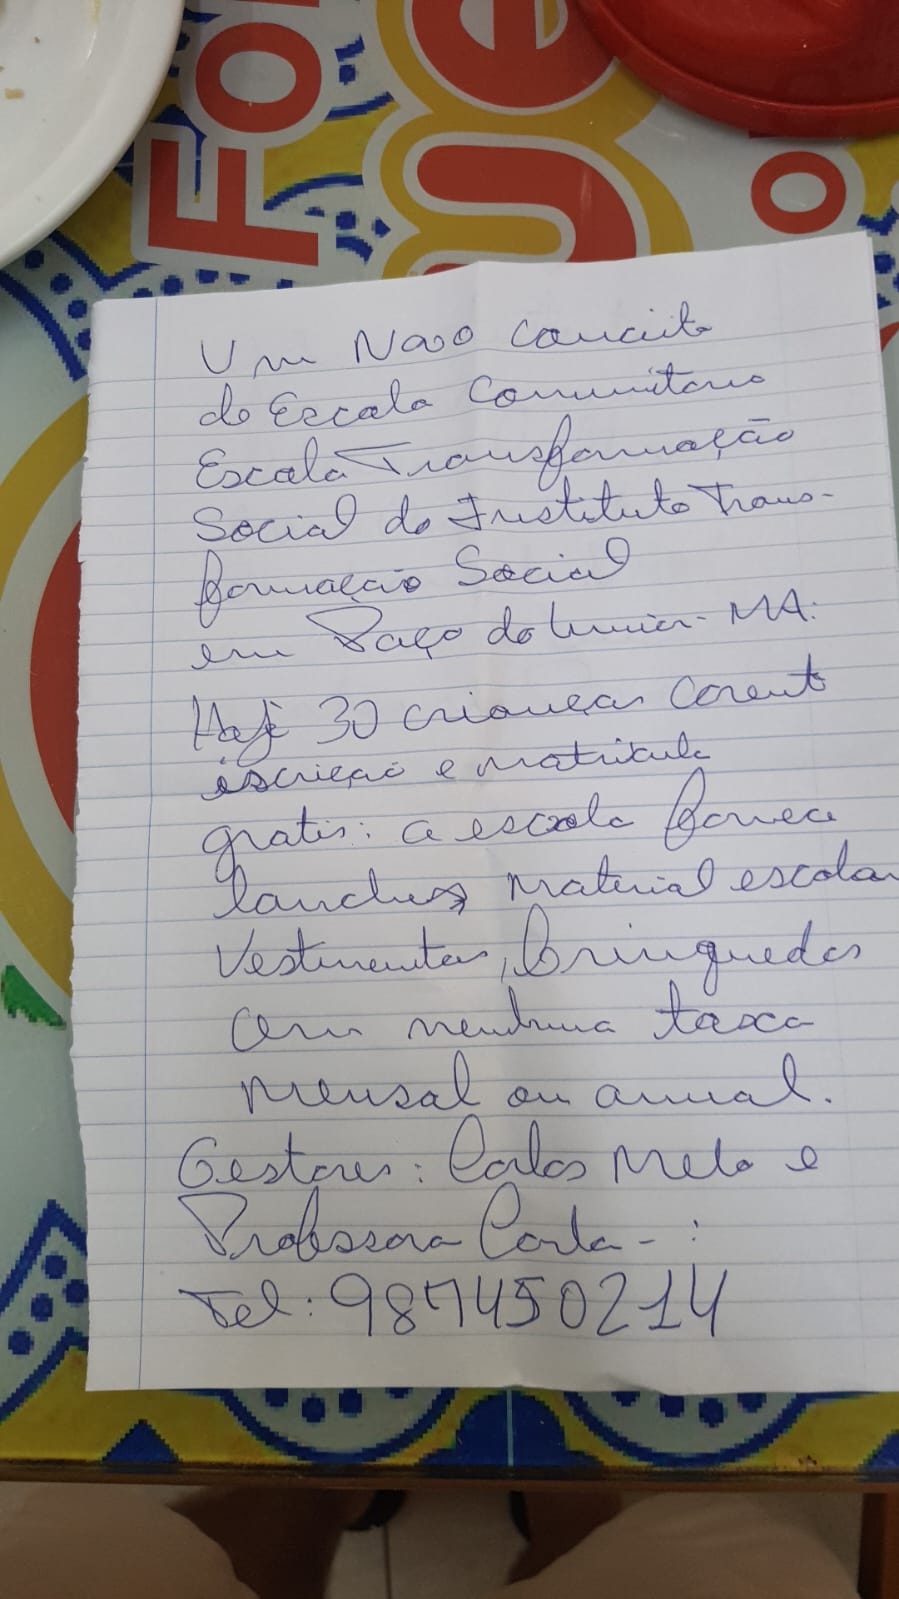 For
ue
o
Um Novo Conceito
de Escola Comunitária
Escola Transformação
Social do Instituto Trans-
formação Social
em Paço do Lumiar - MA:
Hoje 30 crianças
iscrição e matricula
gratis: a escola fornece
lanches, material escolar
Vestimentas, brinquedos
sem nenhuma taxa
mensal ou anual.
Gestores: Carlos Melo e
Professora Carla - :
Tel: 987450214